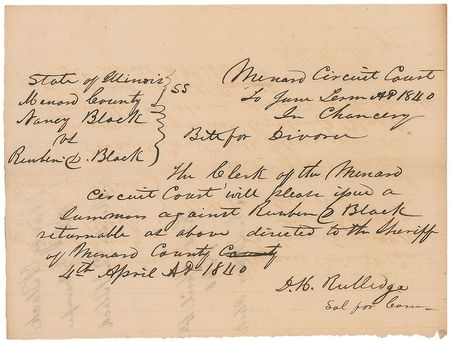 State of Illinois } SS
Menard County
Nancy Black
vs
Reuben D. Black
Menard Circuit Court
To June Term AD 1840
In Chancery
Bill for Divorce
The Clerk of the Menard
Circuit Court will please issue a
Summons against Reuben D Black
returnable as above directed to the Sheriff
of Menard County County
4th April AD 1840
D. H. Rutledge
Sol for Com